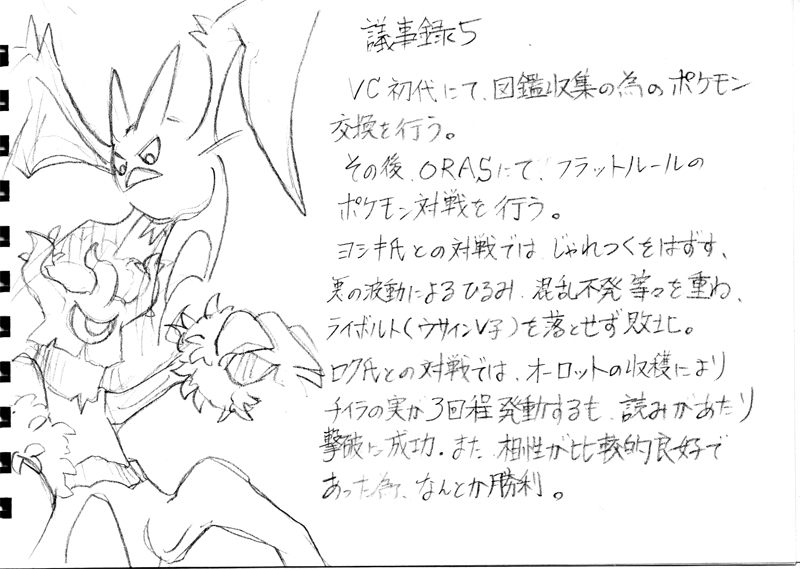 議事録5
VC初代にて、図鑑収集の為のポケモン
交換を行う。
その後、ORASにて、フラットルールの
ポケモン対戦を行う。
ヨシキ氏との対戦では、じゃれつくをはずす、
悪の波動によるひるみ、混乱不発等々を重ね、
ライボルト(ウサインV子)を落とせず敗北。
ログ氏との対戦では、オーロットの収穫により
チイラの実が3回程発動するも、読みがあたり
撃破に成功。また、相性が比較的良好で
あった為、なんとか勝利。